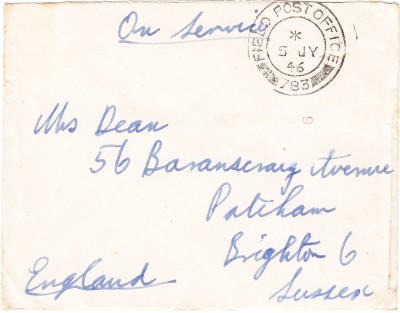 On Service
FIELD POST OFFICE
*
5 JY
46
783
Mrs Dean
56 Baranscraig Avenue
Patcham
Brighton 6
Sussex
England
6